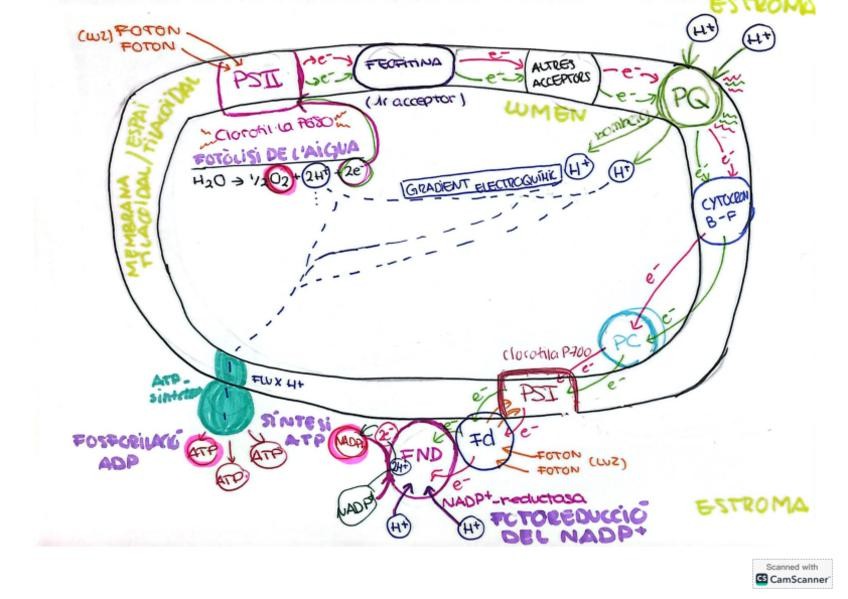 ESTROMA
(LUZ) FOTON
FOTON
H+
H+
PSII
e-
e-
FEOFITINA
(1r acceptor)
e-
e-
ALTRES
ACCEPTORS
e-
e-
PQ
LUMEN
Clorofil·la P680
FOTÒLISI DE L'AIGUA
H2O → 1/2 O2 + 2H+ + 2e-
GRADIENT ELECTROQUÍMIC
H+
H+
MEMBRANA
TILACOIDAL / ESPAI
TILACOIDAL
e-
e-
CYTOCROM
B-F
e-
e-
PC
Clorofila P700
e-
e-
PSI
ATP-
sintetasa
FLUX H+
FOSFORILACIÓ
ADP
SÍNTESI
ATP
ATP
ATP
ATP
NADP
2e-
2H+
FND
e-
e-
Fd
e-
e-
FOTON
FOTON (LUZ)
NADP+
H+
H+
NADP+-reductasa
FOTOREDUCCIÓ
DEL NADP+
ESTROMA
Scanned with
CS CamScanner